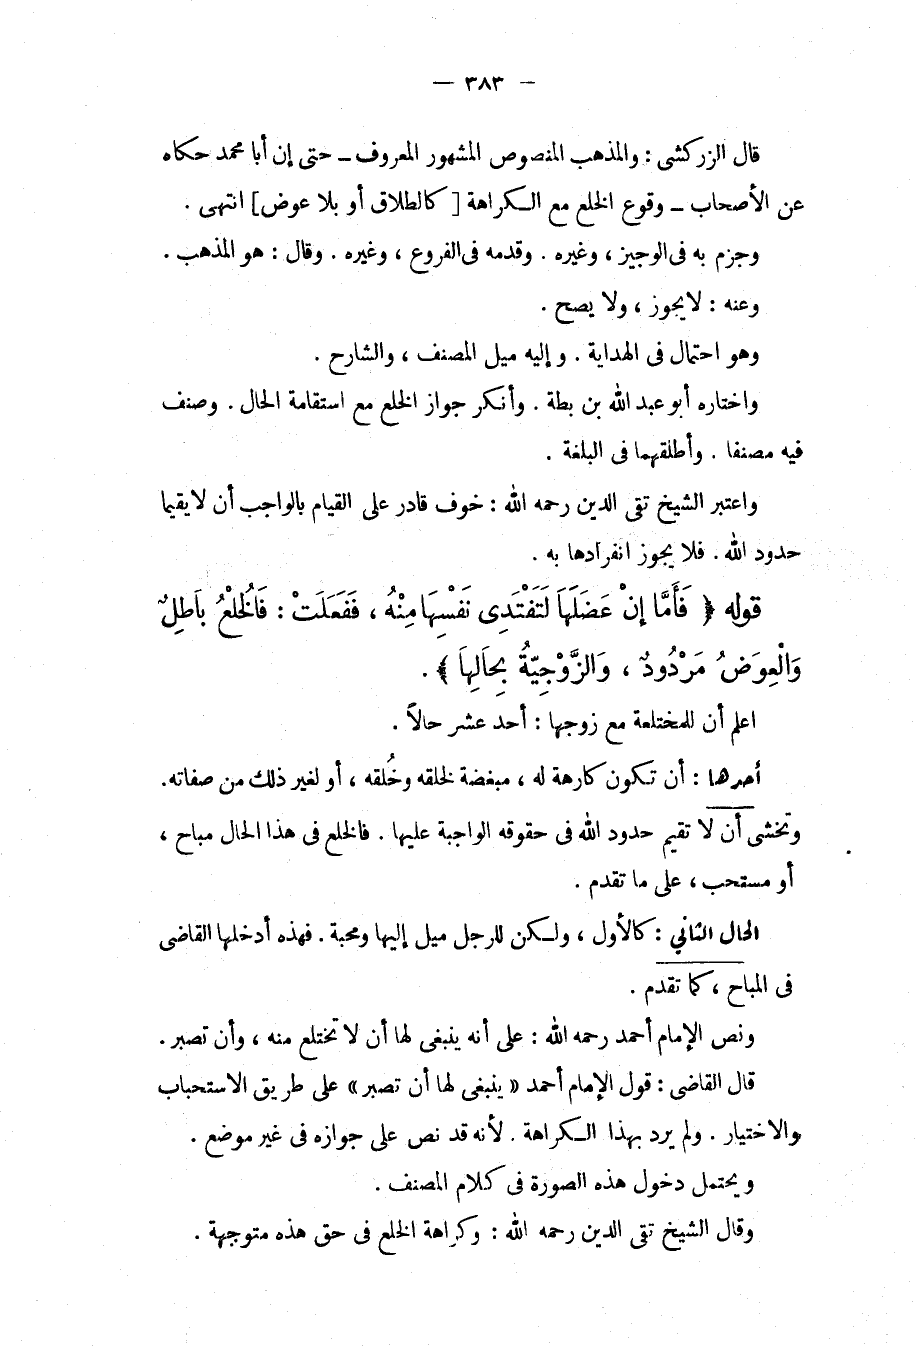 — ٣٨٣ —
قال الزركشى : والمذهب المنصوص المشهور المعروف ـ حتى إن أبا محمد حكاه
عن الأصحاب ـ وقوع الخلع مع الكراهة [ كالطلاق أو بلا عوض ] انتهى .
وجزم به فى الوجيز ، وغيره . وقدمه فى الفروع ، وغيره . وقال : هو المذهب .
وعنه : لا يجوز ، ولا يصح .
وهو احتمال فى الهداية . و إليه ميل المصنف ، والشارح .
واختاره أبو عبد الله بن بطة . وأنكر جواز الخلع مع استقامة الحال . وصنف
فيه مصنفا . وأطلقهما فى البلغة .
واعتبر الشيخ تقى الدين رحمه الله : خوف قادر على القيام بالواجب أن لا يقيما
حدود الله . فلا يجوز انفرادها به .
قوله ﴿ فَأَمَّا إِنْ عَضَلَهَا لِتَفْتَدِى نَفْسَهَا مِنْهُ ، فَفَعَلَتْ : فَالْخُلْعُ بَاطِلٌ
وَالْعِوَضُ مَرْدُودٌ ، وَالزَّوْجِيَّةُ بِحَالِهَا ﴾ .
اعلم أن للمختلعة مع زوجها : أحد عشر حالاً .
أحدها : أن تكون كارهة له ، مبغضة لخلقه وخُلقه ، أو لغير ذلك من صفاته.
وتخشى أن لا تقيم حدود الله فى حقوقه الواجبة عليها . فالخلع فى هذا الحال مباح ،
أو مستحب ، على ما تقدم .
الحال الثاني : كالأول ، ولكن للرجل ميل إليها ومحبة . فهذه أدخلها القاضى
فى المباح ، كما تقدم .
ونص الإمام أحمد رحمه الله : على أنه ينبغى لها أن لا تختلع منه ، وأن تصبر .
قال القاضى : قول الإمام أحمد « ينبغى لها أن تصبر » على طريق الاستحباب
والاختيار . ولم يرد بهذا الكراهة . لأنه قد نص على جوازه فى غير موضع .
و يحتمل دخول هذه الصورة فى كلام المصنف .
وقال الشيخ تقى الدين رحمه الله : وكراهة الخلع فى حق هذه متوجهة .